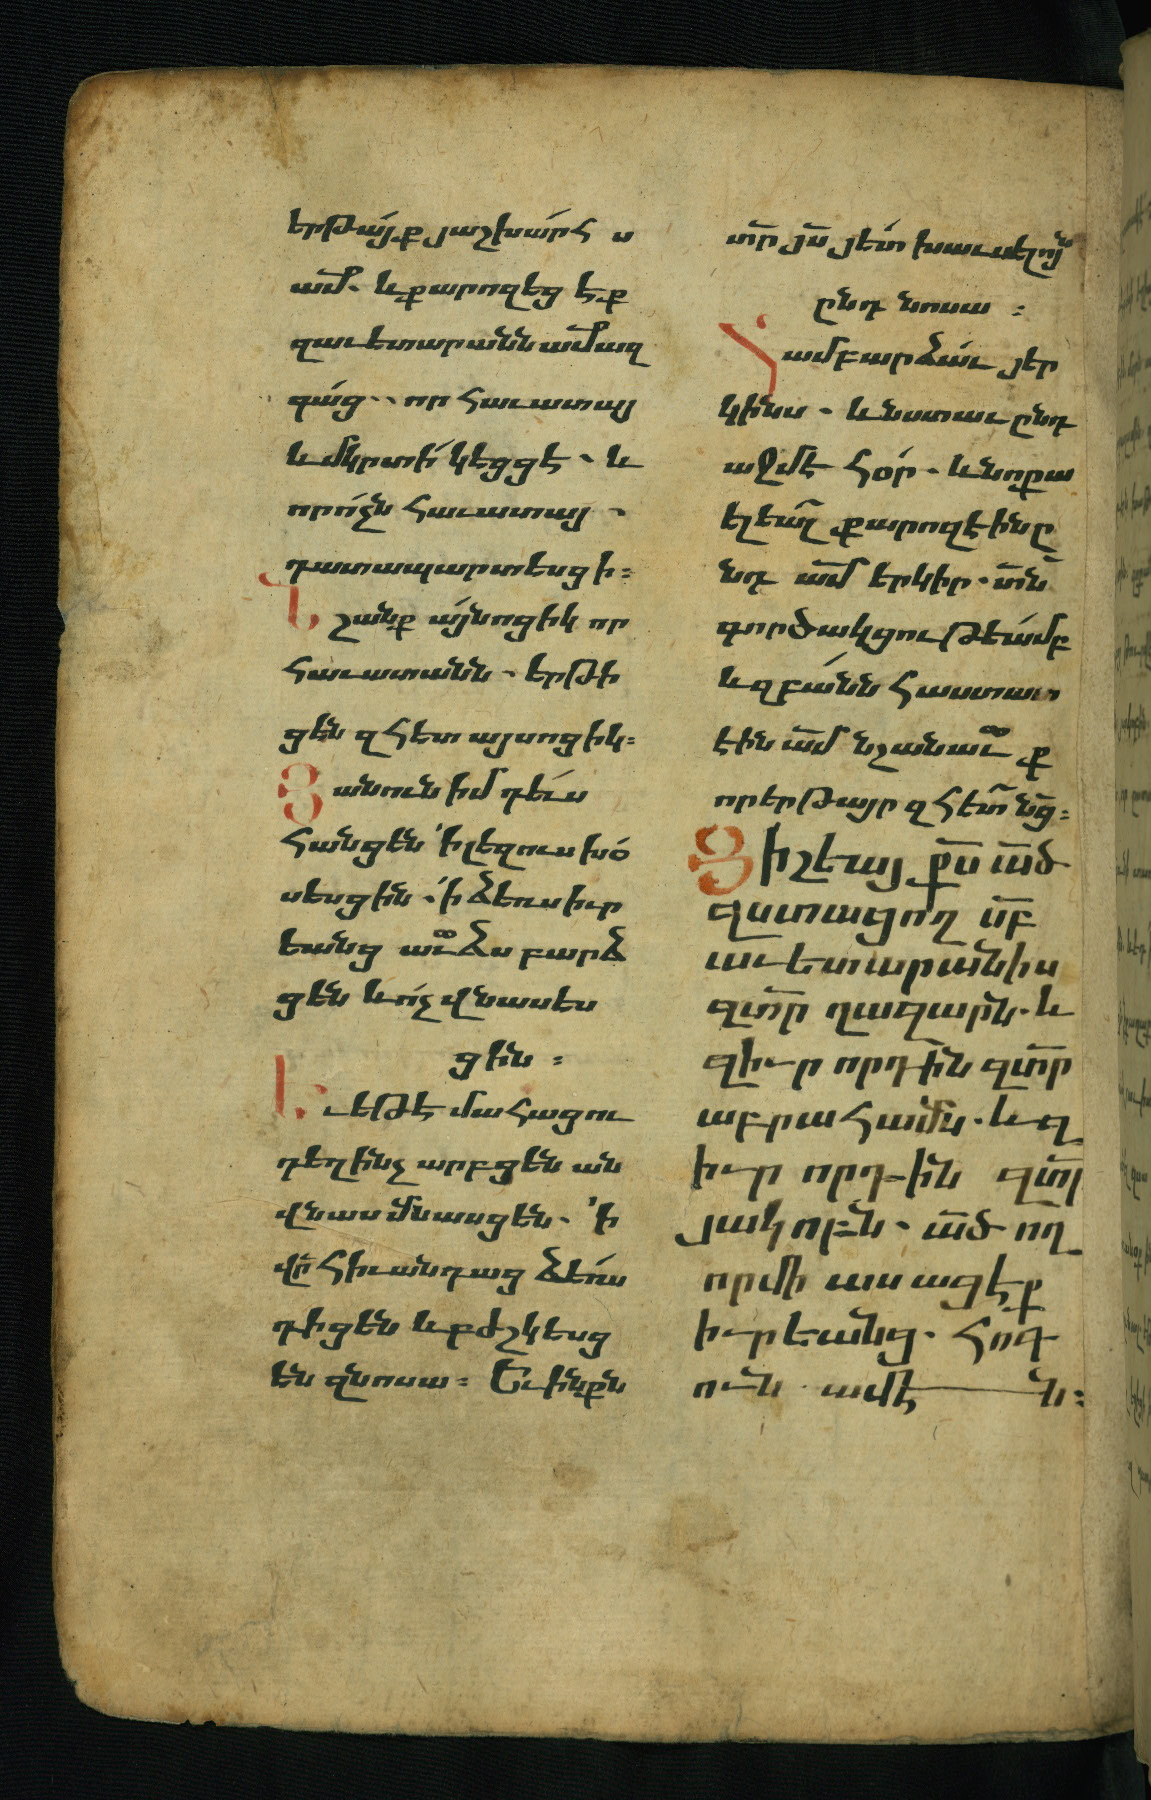 երթա՛յք յաշխա՛րհ ս
ամ՟. և քարոզեց եք
զաւետարանն ամ՟ազ
գա՛ց.. որ հաւատայ
և մկրտի՛ կեցցէ. և
որո՛չն հաւատայ.
դատապարտեսցի։
Նշանք ա՛յնոցիկ որ
հաւատանն. երթի
ցեն զհետ այսոցիկ։
Յանուն իմ դե՛ւս
հանցեն ՚ի լեզուս խօ
սեսցին. ՚ի ձեռս իւր
եանց աւ՟ձս բարձ
ցեն և ո՛չ վնասես
ցին։
Եւ եթէ մահացու
դեղ ինչ արբցեն ան
վնաս մնասցեն. ՚ի
վր՟ հիւանդաց ձե՛ռս
դիցեն և բժշկեսց
են զնոսա։ Եւ ինքն
տր՟ յս՟ յետ խաւսելոյ՟
ընդ նոսա։
Համբարձաւ յեր
կինս. և նստաւ ընդ
աջմէ հօր. և նոքա
ելեալ՟ քարոզէին ը
նդ ամ՟ երկիր. տն՟
գործակցութե՛ամբ
և զբանն հաստատ
էին ամ՟ նշանաւ՟ք
որ երթայր զհետ՟ նց՟։
Յիշեայ քս՟ ած՟
զստացող սբ՟
աւետարանիս
զտր՟ ղազարն. և
զիւր որդին զտր՟
աբրահամն. և զ
իւր որդին զտր՟
յակոբն. ած՟ ող
որմի ասացէք
իւրեանց. հոգ
ուն ամէն։